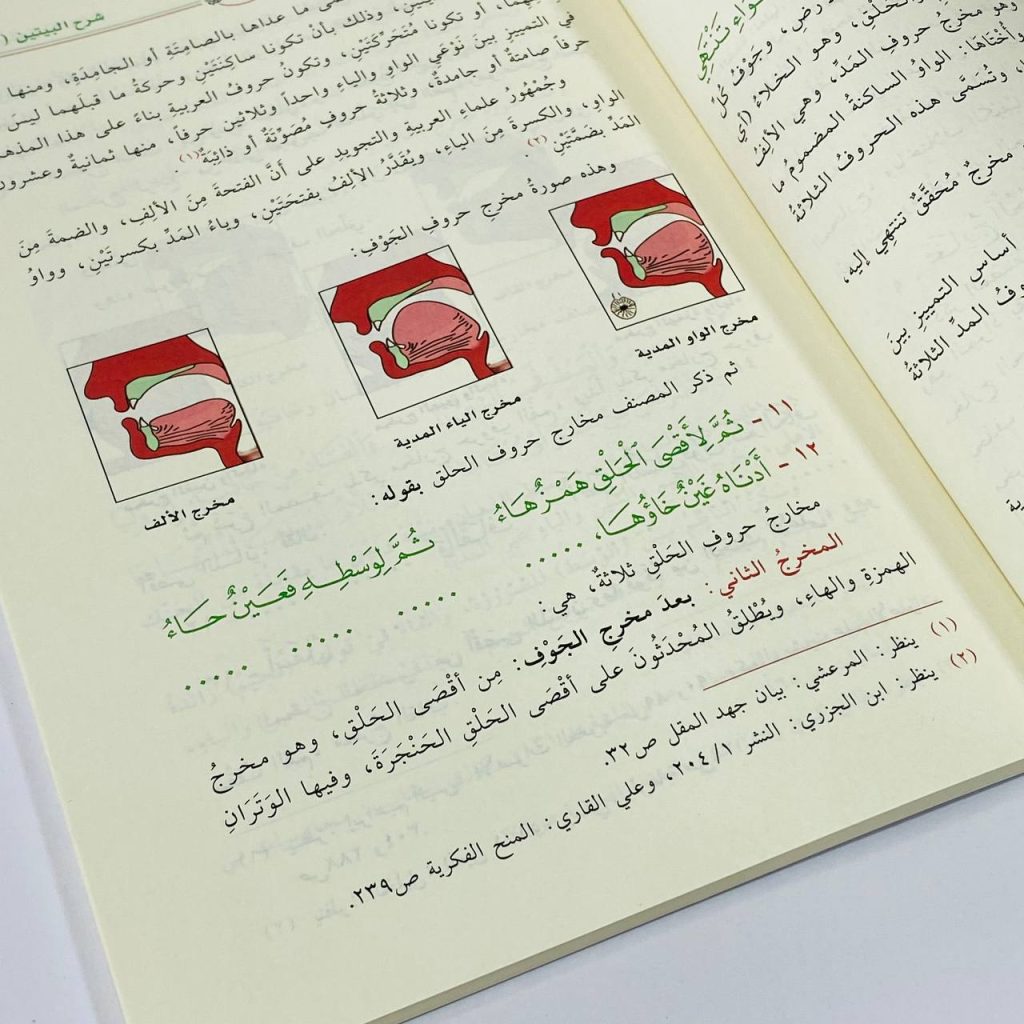 شرح البيتين (
ما عداها بالصامِتَةِ أو الجامِدَةِ، ومنها
، وذلك بأنْ تكونا ساكِنَتَيْنِ وحركةُ ما قبلَهما ليسَ
، أو تكونا مُتَحَرِّكَتَيْنِ، وتكونُ حروفُ العربيةِ بناءً على هذا المذهبِ
في التمييزِ بينَ نَوْعَيِ الواوِ والياءِ واحداً وثلاثينَ حرفاً، منها ثمانيةٌ وعشرونَ
حرفاً صامتةٌ أو جامدةٌ، وثلاثةُ حروفٍ مُصَوِّتَةٌ أو ذائِبَةٌ(١).
وجُمْهُورُ علماءِ العربيةِ والتجويدِ على أنَّ الفتحةَ مِنَ الألِفِ، والضمةَ مِنَ
الواوِ، والكسرةَ مِنَ الياءِ، ويُقَدَّرُ الألِفُ بفتحتَيْنِ، وياءُ المَدِّ بكسرتَيْنِ، وواوُ
المَدِّ بضَمَّتَيْنِ(٢).
وهذه صورةُ مخرجِ حروفِ الجَوْفِ:
مخرج الواو المدية
مخرج الياء المدية
مخرج الألف
ثم ذكر المصنف مخارج حروف الحلق بقوله:
١١ - ثُمَّ لِأَقْصَى الْحَلْقِ هَمْزٌ هَاءُ ثُمَّ لِوَسْطِهِ فَعَيْنٌ حَاءُ
١٢ - أَدْنَاهُ غَيْنٌ خَاؤُهَا، ...... ..... ...... .....
مخارجُ حروفِ الحَلْقِ ثلاثةٌ، هي:
المخرجُ الثاني: بعدَ مخرجِ الجَوْفِ: مِن أقْصَى الحَلْقِ، وهو مخرجُ
الهمزةِ والهاءِ، ويُطْلِقُ المُحْدَثُونَ على أقْصَى الحَلْقِ الحَنْجَرَةَ، وفيها الوَتَرَانِ
(١) ينظر: المرعشي: بيان جهد المقل ص٣٢.
(٢) ينظر: ابن الجزري: النشر ٢٠٤/١، وعلي القاري: المنح الفكرية ص٢٣٩.
تَنْتَهِي
، وجَوْفُ كُلِّ
الحَلْقِ، وهو الخلاءُ (أي
وهو مخرجُ حروفِ المَدِّ، وهي الألِفُ
وأُخْتَاهَا: الواوُ الساكنةُ المضمومُ ما
، وتُسَمَّى هذه الحروفُ الثلاثةُ
مخرجٌ مُحَقَّقٌ تنتهِي إليه،
أساسِ التمييزِ بينَ
المدِّ الثلاثةُ